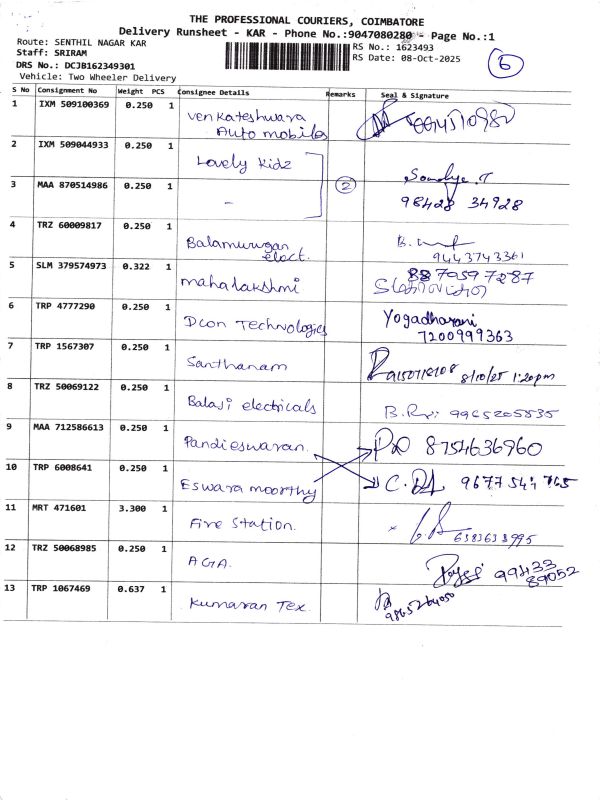 THE PROFESSIONAL COURIERS, COIMBATORE
Delivery Runsheet - KAR - Phone No.:9047080280 - Page No.:1
Route: SENTHIL NAGAR KAR
Staff: SRIRAM
DRS No.: DCJB162349301
Vehicle: Two Wheeler Delivery
RS No.: 1623493
RS Date: 08-Oct-2025
6
S No Consignment No Weight PCS Consignee Details Remarks Seal & Signature
1 IXM 509100369 0.250 1 Venkateshwara
Auto mobiles
2 IXM 509044933 0.250 1 Lovely Kidz
3 MAA 870514986 0.250 1 - 2 Sandye.T
98428 34928
4 TRZ 60009817 0.250 1 Balamurugan
elect.
9443743361
5 SLM 379574973 0.322 1 mahalakshmi 8879597287
6 TRP 4777290 0.250 1 Dcon Technologies Yogadharani
7200999363
7 TRP 1567307 0.250 1 Santhanam 8/10/25 1:20pm
8 TRZ 50069122 0.250 1 Balaji electricals 9965205535
9 MAA 712586613 0.250 1 Pandieswaran 8754636960
10 TRP 6008641 0.250 1 Eswara moorthy 9677544765
11 MRT 471601 3.300 1 Fire Station. 6383633995
12 TRZ 50068985 0.250 1 AGA. 99433
89052
13 TRP 1067469 0.637 1 Kumaran Tex. 9865264050